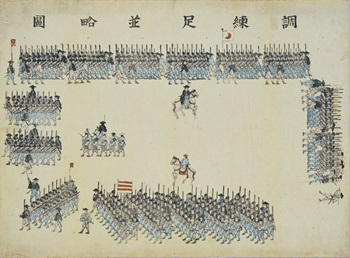 調練足並略圖